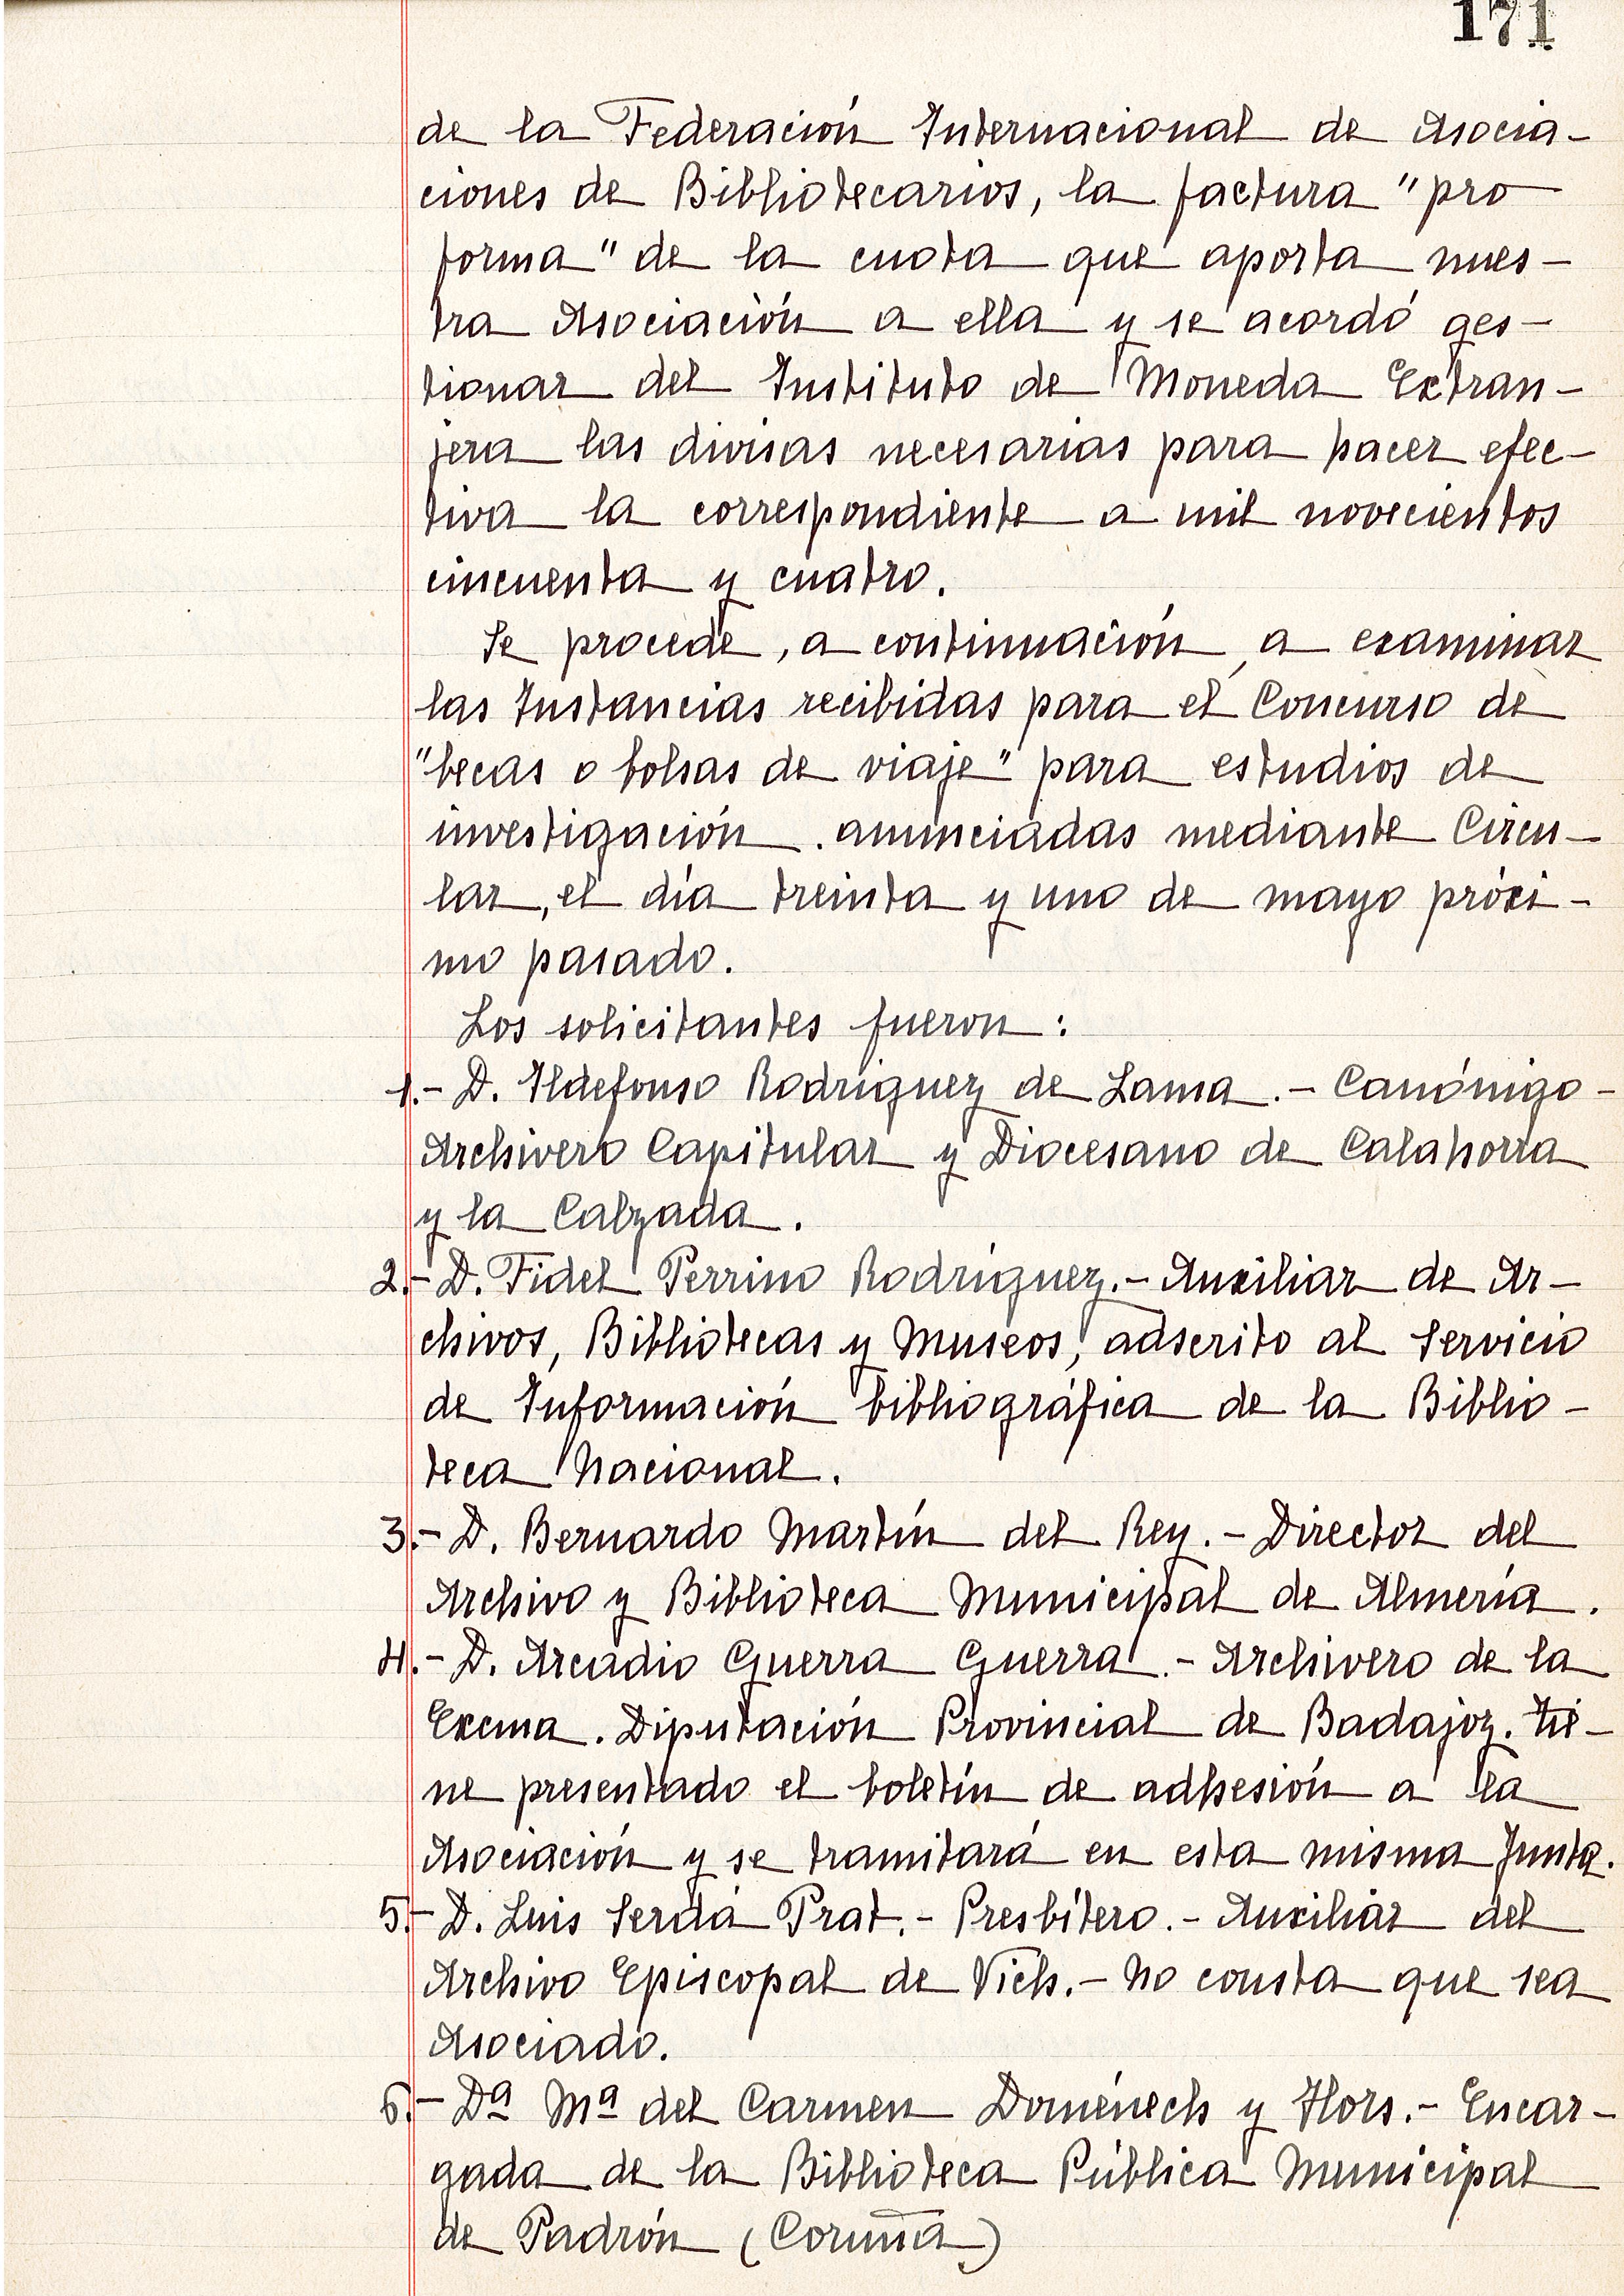 171
de la Federación Internacional de Asocia-
ciones de Bibliotecarios, la factura "pro
forma" de la cuota que aporta nues-
tra Asociación a ella y se acordó ges-
tionar del Instituto de Moneda Extran-
jera las divisas necesarias para hacer efec-
tiva la correspondiente a mil novecientos
cincuenta y cuatro.
Se procede, a continuación, a examinar
las Instancias recibidas para el Concurso de
"becas o bolsas de viaje" para estudios de
investigación. anunciadas mediante Circu-
lar, el día treinta y uno de mayo próxi-
mo pasado.
Los solicitantes fueron:
1.- D. Ildefonso Rodríguez de Lama.- Canónigo-
Archivero Capitular y Diocesano de Calahorra
y la Calzada.
2.- D. Fidel Perrino Rodríguez.- Auxiliar de Ar-
chivos, Bibliotecas y Museos, adscrito al Servicio
de Información bibliográfica de la Biblio-
teca Nacional.
3.- D. Bernardo Martín del Rey.- Director del
Archivo y Biblioteca Municipal de Almería.
4.- D. Arcadio Guerra Guerra.- Archivero de la
Excma. Diputación Provincial de Badajoz. Tie-
ne presentado el boletín de adhesión a la
Asociación y se tramitará en esta misma Junta.
5.- D. Luis Serdá Prat.- Presbítero.- Auxiliar del
Archivo Episcopal de Vich.- No consta que sea
Asociado.
6.- Dª Mª del Carmen Doménech y Flors.- Encar-
gada de la Biblioteca Pública Municipal
de Padrón (Coruña)